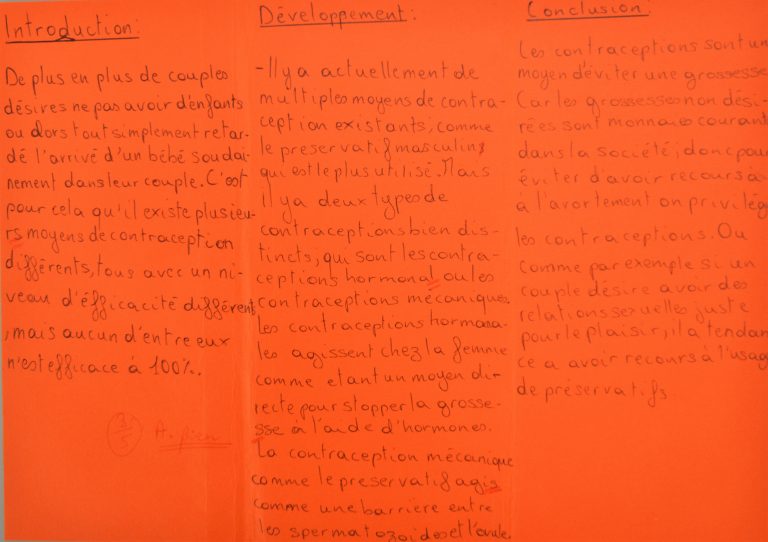 Introduction:
De plus en plus de couples
désires ne pas avoir d'énfants
ou alors tout simplement retar-
dé l'arrivé d'un bébé soudai-
nement dans leur couple. C'est
pour cela qu'il existe plusieu-
rs moyens de contraception
différents, tous avec un ni-
veau d'éfficacité différent
, mais aucun d'entre eux
n'est efficace à 100%.
A. bien
Développement:
- Il y a actuellement de
multiples moyens de contra-
ception existants, comme
le preservatif masculin,
qui est le plus utilisé. Mais
il y a deux types de
contraceptions bien dis-
tincts, qui sont les contra-
ceptions hormonal ou les
contraceptions mécaniques.
Les contraceptions hormona-
les agissent chez la femme
comme etant un moyen di-
recte pour stopper la grosse-
sse à l'aide d'hormones.
La contraception mécanique
comme le preservatif agis
comme une barrière entre
les spermatozoides et l'ovule.
Conclusion:
Les contraceptions sont un
moyen d'éviter une grossesse
Car les grossesses non dési-
rées sont monnaies courant
dans la société, donc pour
éviter d'avoir recours à
à l'avortement on privilég
les contraceptions. Ou
comme par exemple si un
couple désire avoir des
relations sexuelles juste
pour le plaisir, il a tendan
ce a avoir recours à l'usag
de préservatifs